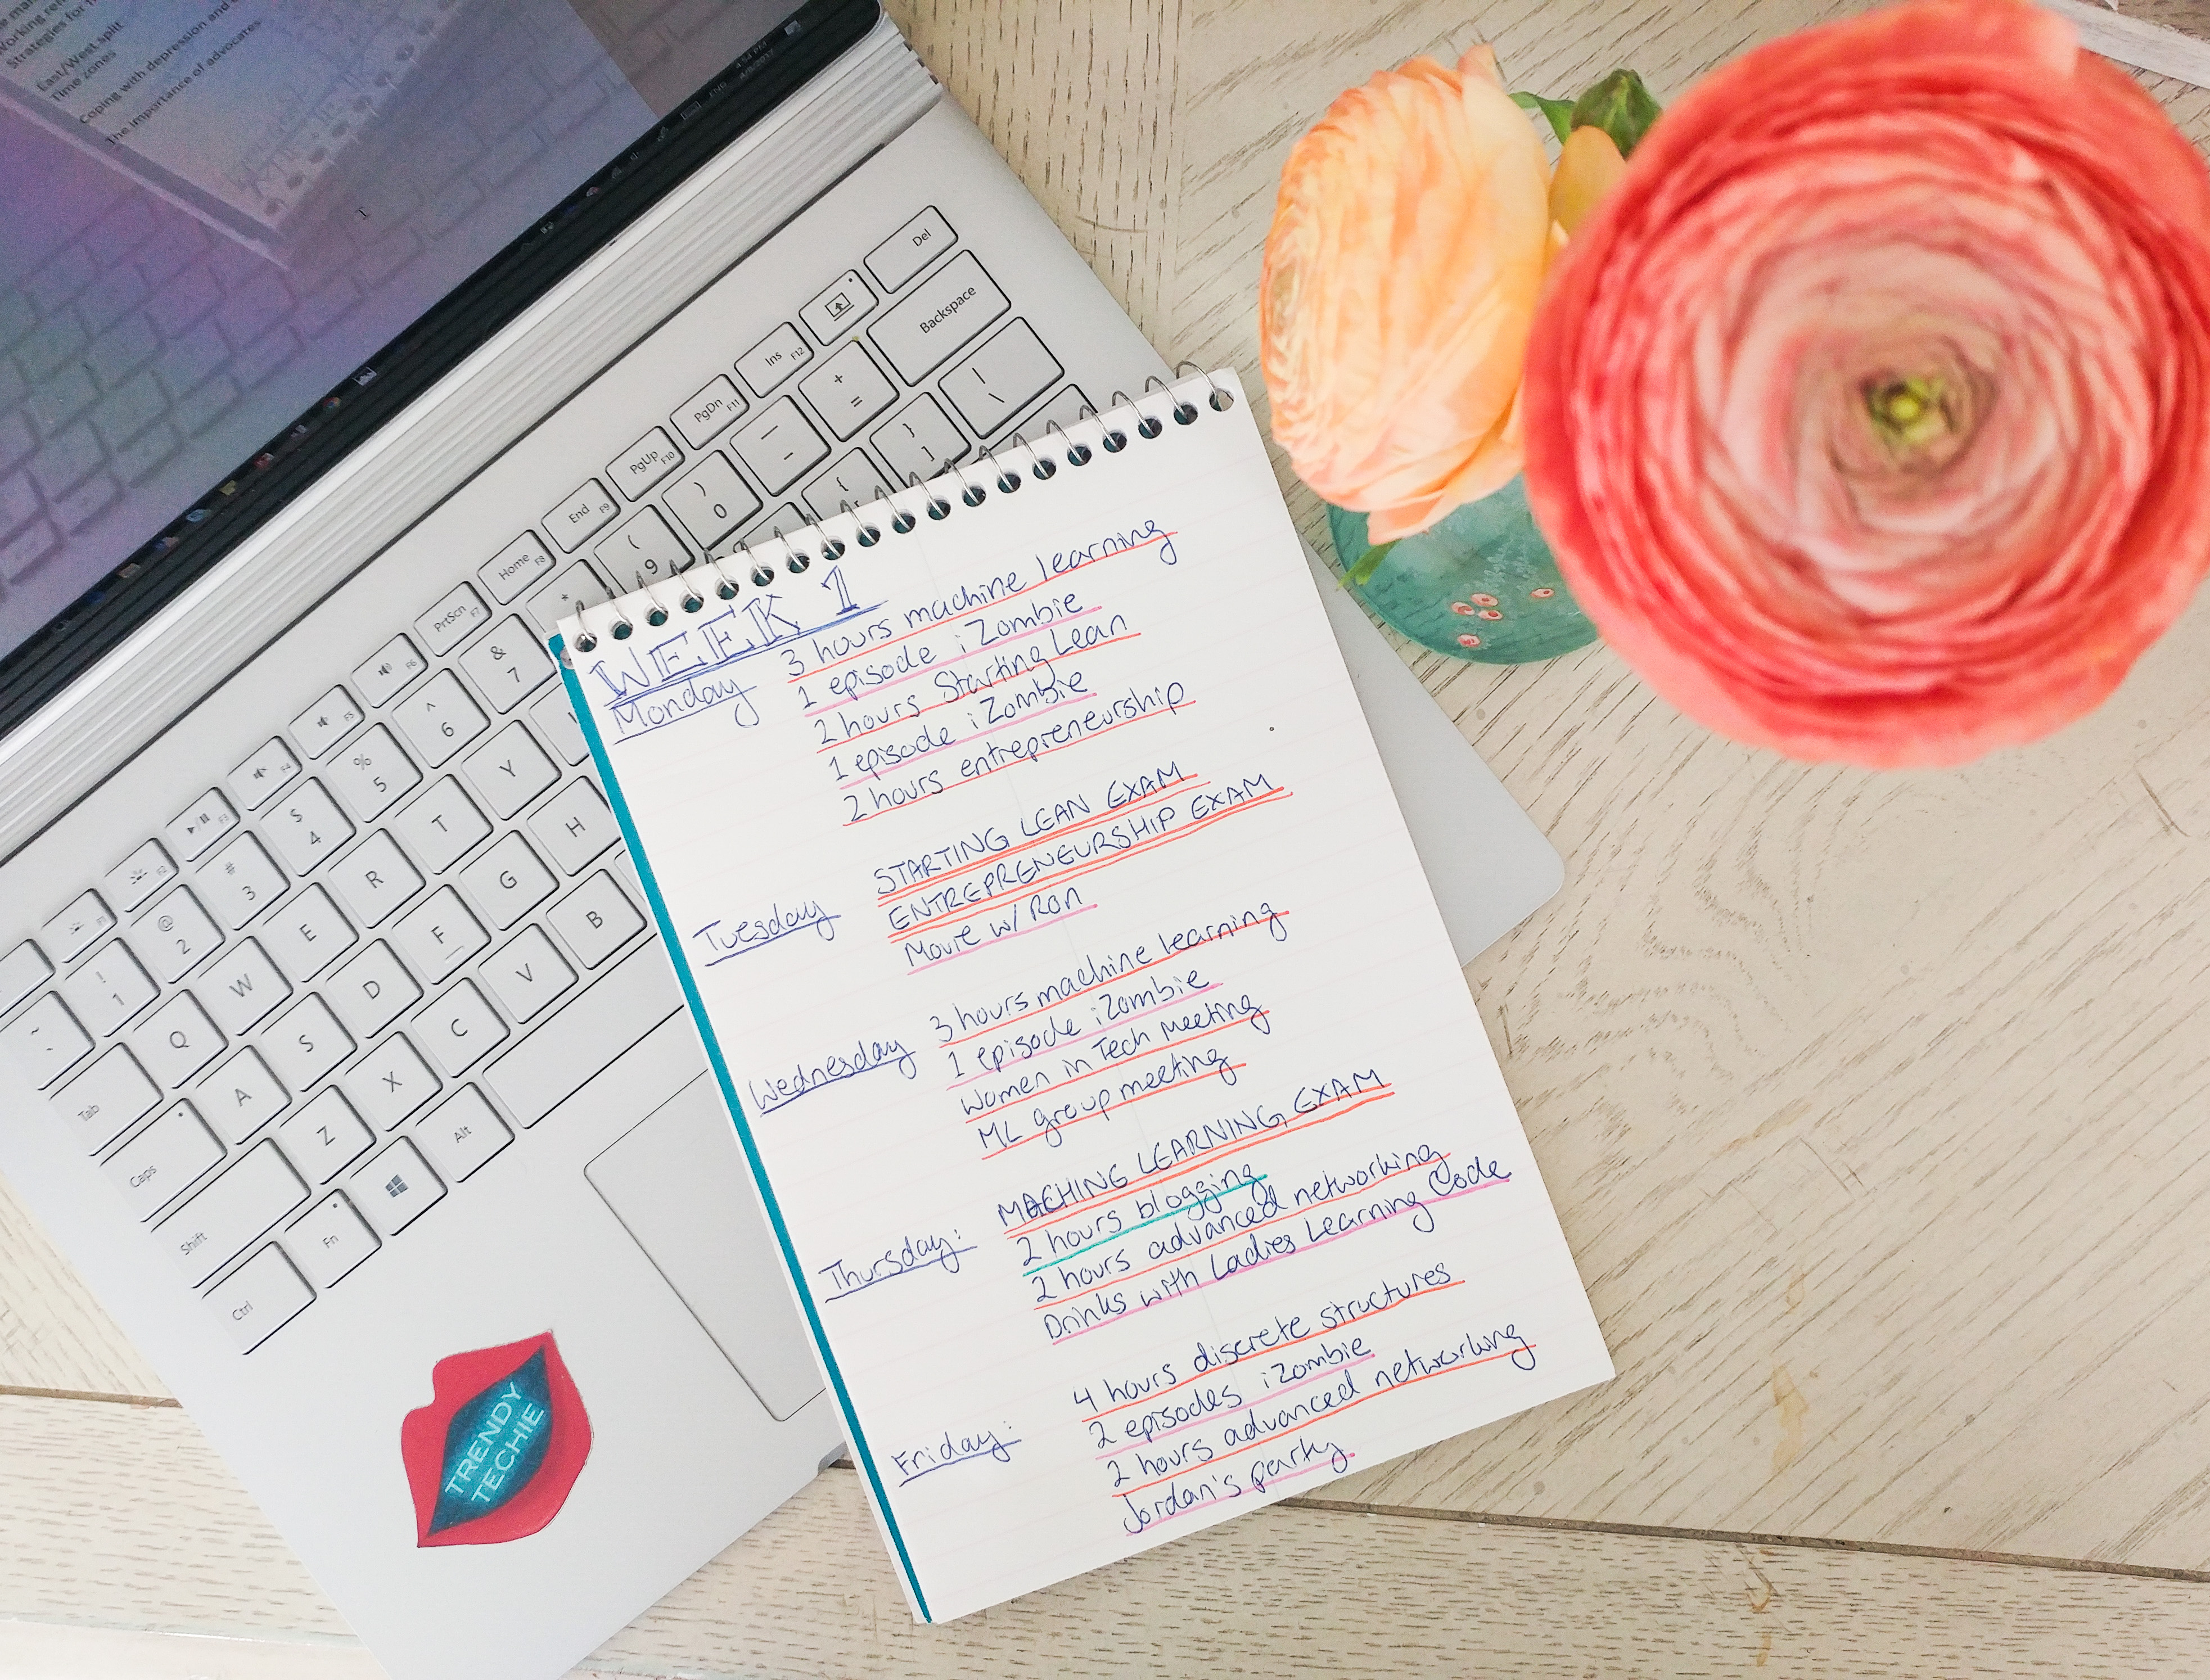 Strategies for
East/West split
Time zones
Coping with depression and
The importance of advocates
4:54 PM
ENG
Del
Backspace
Ins F12
PgDn F11
PgUp F10
End F9
Home F8
PrtScn F7
F6
F5
F4
F3
F2
F1
+ =
_ -
) 0
( 9
*
& 7
^ 6
% 5
$ 4
# 3
@ 2
! 1
~ `
| \
} ]
{ [
Tab
Q
W
E
R
T
Y
Caps
A
S
D
F
G
H
Shift
Z
X
C
V
B
Ctrl
Fn
Alt
TRENDY
TECHIE
WEEK 1
Monday 3 hours machine learning
1 episode iZombie
2 hours Starting Lean
1 episode iZombie
2 hours entrepreneurship
STARTING LEAN EXAM
Tuesday ENTREPRENEURSHIP EXAM
Movie w/ Ron
3 hours machine learning
Wednesday 1 episode iZombie
Women in Tech Meeting
ML group meeting
MACHING LEARNING EXAM
2 hours blogging
Thursday: 2 hours advanced networking
Drinks with Ladies Learning Code
4 hours discrete structures
2 episodes iZombie
Friday: 2 hours advanced networking
Jordan's party